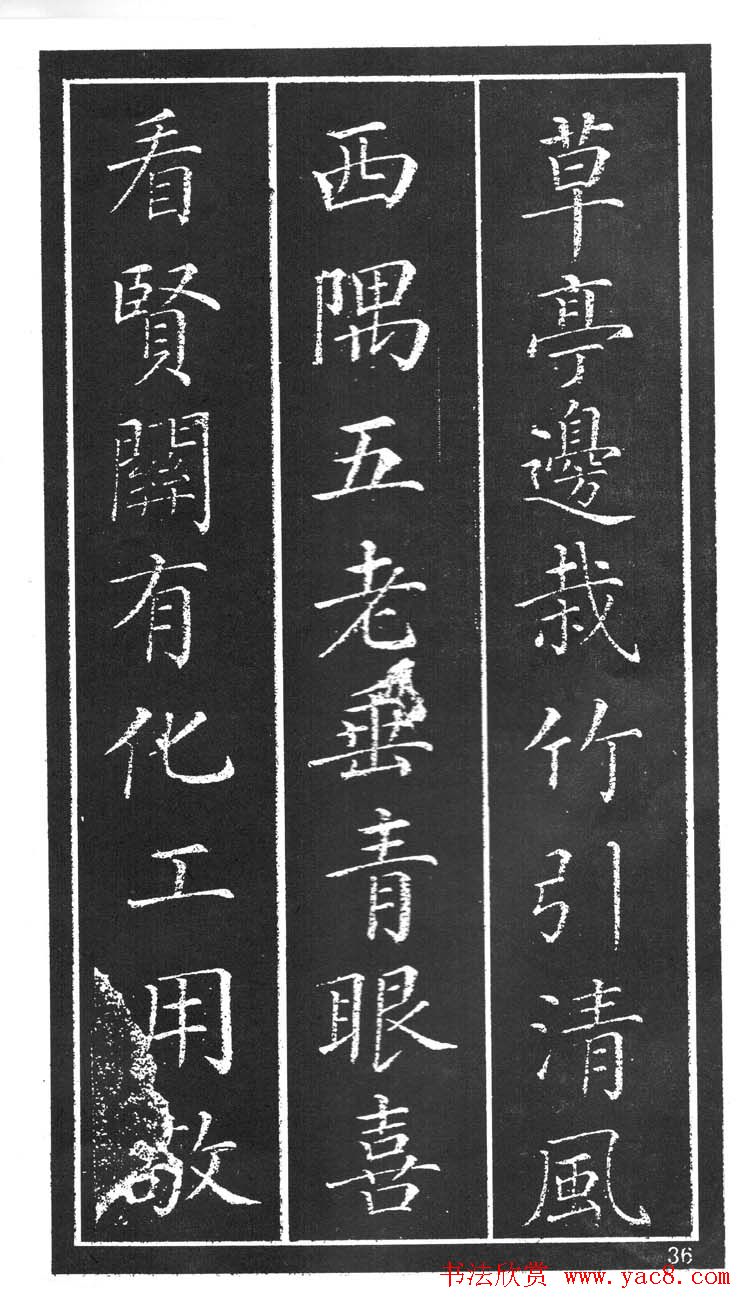 草亭邊栽竹引清風
西隅五老垂青眼喜
看賢關有化工用敬
36
书法欣赏 www.yac8.com